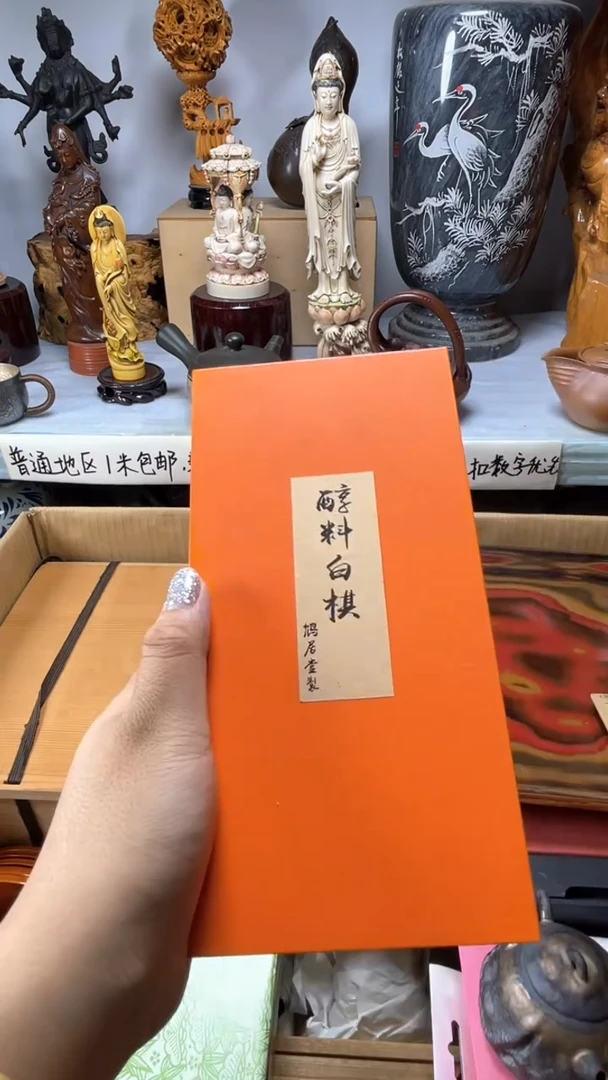 普通地区1米包邮
扣数字优先
醇料白棋
鸠居堂製